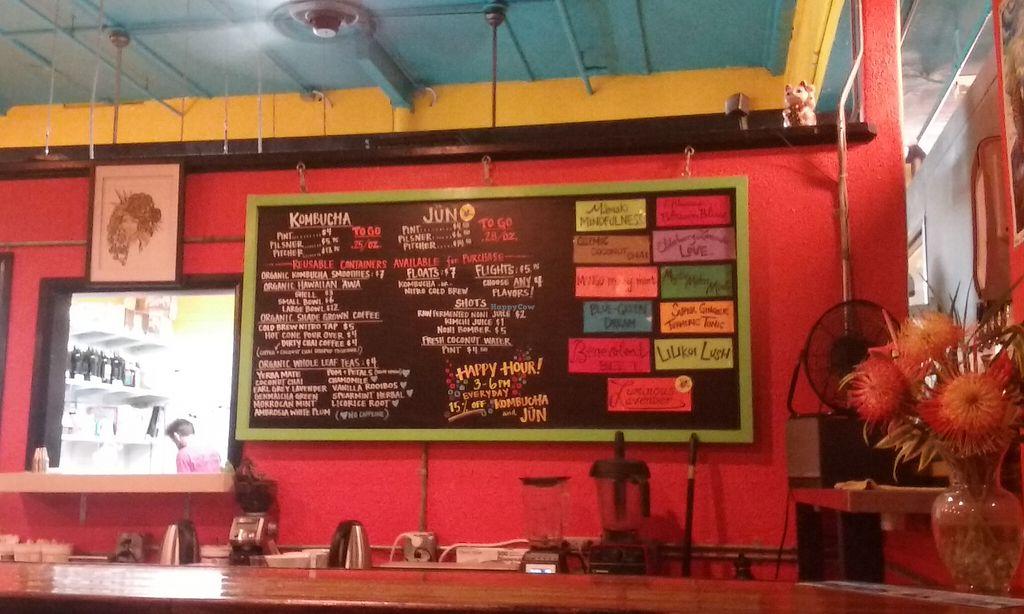 KOMBUCHA
PINT......$4
PILSNER
PITCHER
TO GO
.25/OZ.
JUN
PINT
PILSNER
PITCHER
TO GO
.28/OZ.
REUSABLE CONTAINERS AVAILABLE for PURCHASE
ORGANIC KOMBUCHA SMOOTHIES: $7
ORGANIC HAWAIIAN 'AWA
SHELL
SMALL BOWL
LARGE BOWL
ORGANIC SHADE GROWN COFFEE
COLD BREW NITRO TAP $5
HOT CONE POUR OVER $4
DIRTY CHAI COFFEE $4
ORGANIC WHOLE LEAF TEAS: $4
YERBA MATE
COCONUT CHAI
EARL GREY LAVENDER
GENMAICHA GREEN
MOROCCAN MINT
AMBROSIA WHITE PLUM
POM + PETALS
CHAMOMILE
VANILLA ROOIBOS
SPEARMINT HERBAL
LICORICE ROOT
(NO CAFFEINE)
FLOATS: $7
KOMBUCHA OR
NITRO COLD BREW
FLIGHTS:
CHOOSE ANY 4
FLAVORS!
SHOTS
RAW FERMENTED NONI JUICE $2
KIMCHI JUICE $1
NONI BOMBER $5
FRESH COCONUT WATER
PINT
HAPPY HOUR!
3-6 PM
EVERYDAY
15% OFF KOMBUCHA
and JUN
Mamaki
MINDFULNESS
COCONUT CHAI
LOVE
BLUE-GREEN
DREAM
SUPER GINGER
TURMERIC TONIC
LILIKOI LUSH
Luminous
Lavender
HappyCow